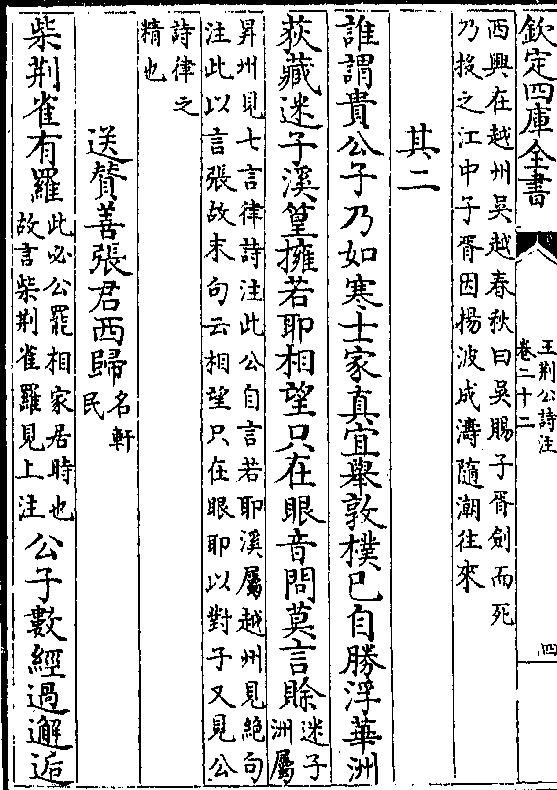 欽定四庫全書
王荆公詩注
卷二十二
四
西興在越州吳越春秋曰吳賜子胥劍而死
乃投之江中子胥因揚波成濤隨潮往來
其二
誰謂貴公子乃如寒士家真宜舉敦樸已自勝浮華洲
荻藏迷子溪篁擁若耶相望只在眼音問莫言賖迷子
洲屬
昇州見七言律詩注此公自言若耶溪屬越州見絶句
注此以言張故末句云相望只在眼耶以對子又見公
詩律之
精也
送贊善張君西歸名軒
民
柴荆雀有羅此必公罷相家居時也
故言柴荆雀羅見上注公子數經過邂逅